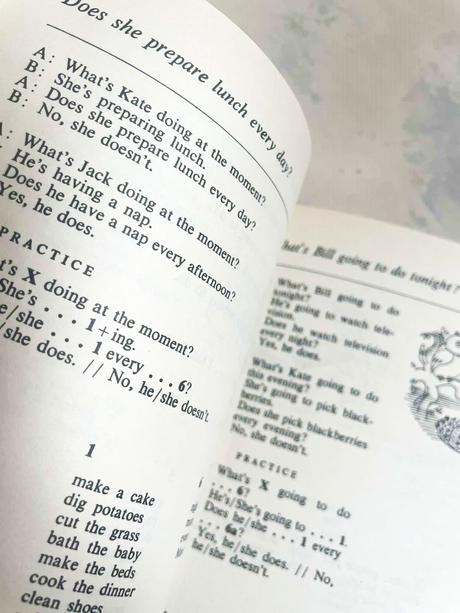 Does she prepare lunch every day?
A: What's Kate doing at the moment?
B: She's preparing lunch.
A: Does she prepare lunch every day?
B: No, she doesn't.
: What's Jack doing at the moment?
He's having a nap.
Does he have a nap every afternoon?
Yes, he does.
PRACTICE
t's X doing at the moment?
She's ... 1+ing.
e/she ... 1 every ... 6?
/she does. // No, he/she doesn't.
1
make a cake
dig potatoes
cut the grass
bath the baby
make the beds
cook the dinner
clean shoes
hat's Bill going to do tonight?
What's Bill going to do
tonight?
He's going to watch tele-
vision.
Does he watch television
every night?
Yes, he does.
What's Kate going to do
this evening?
She's going to pick black-
berries.
Does she pick blackberries
every evening?
No, she doesn't.
PRACTICE
What's X going to do
... 6?
He's/She's going to ... 1.
Does he/she ... 1 every
... 6a?
Yes, he/she does. // No,
he/she doesn't.